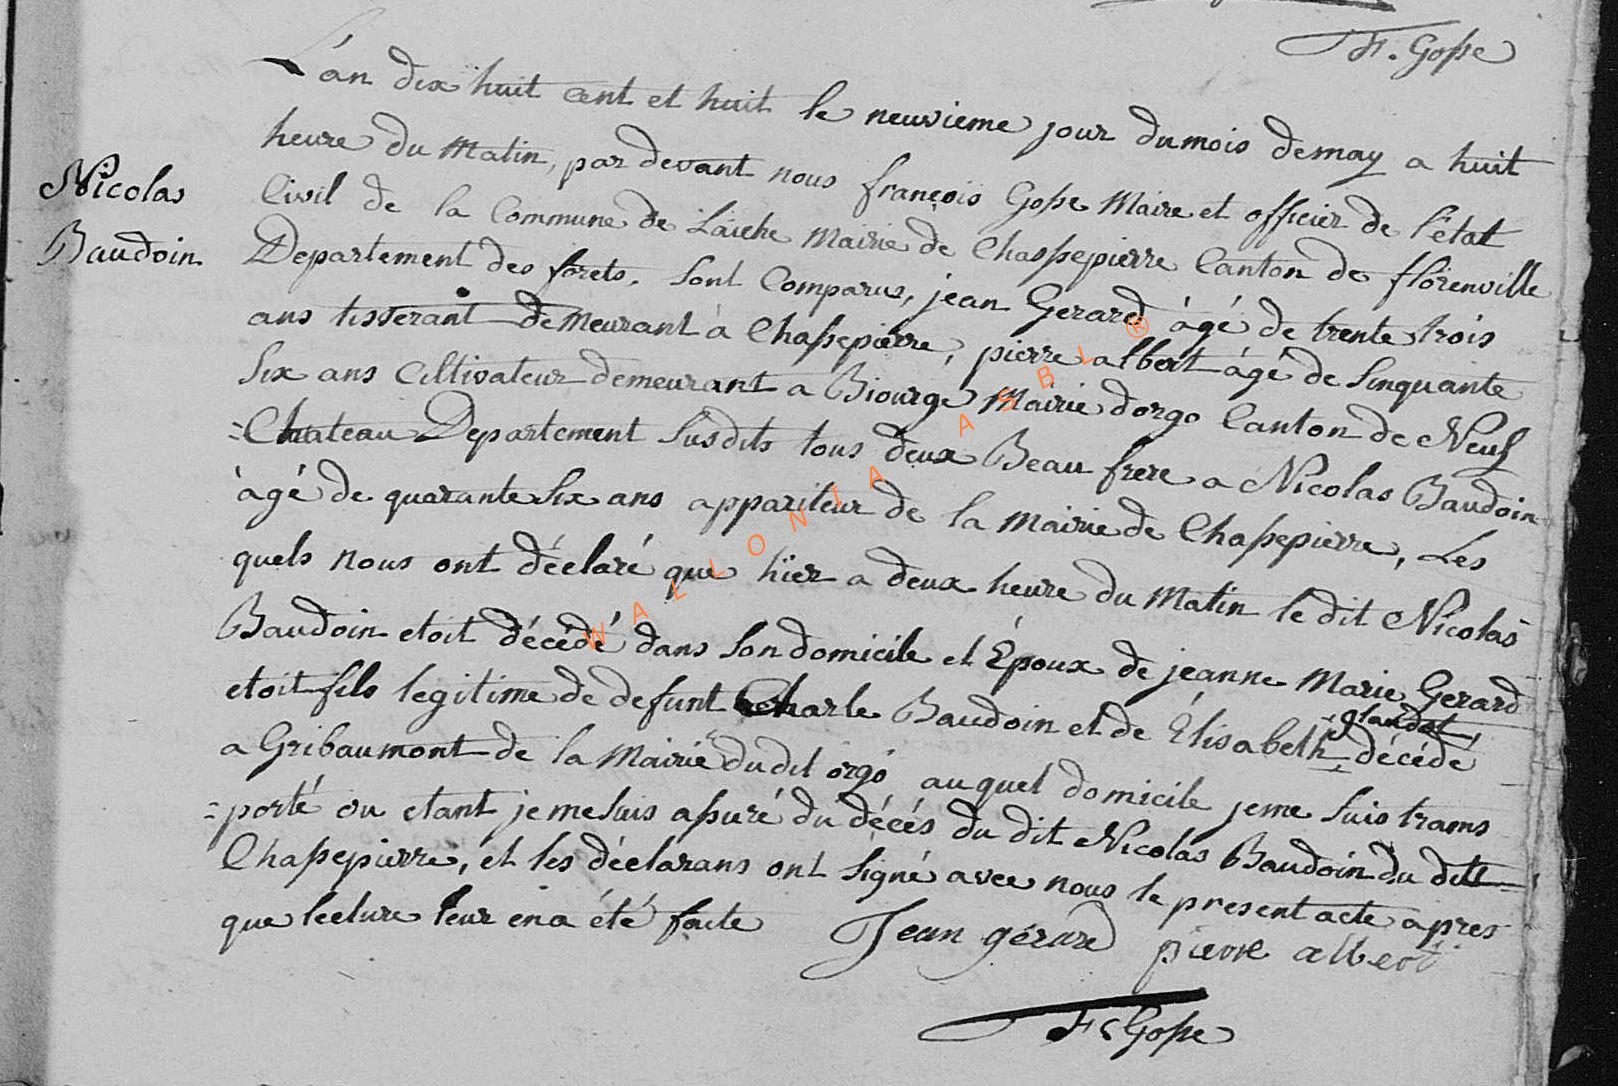 F. Gosse
L'an dix huit cent et huit le neuvieme jour du mois de may a huit
heure du Matin, par devant nous françois Gosse Maire et officier de l'état
Nicolas
Baudoin
Civil de la Commune de Laiche Mairie de Chassepierre Canton de florenville
Departement des forets. Sont Comparus, jean Gerard âgé de trente trois
ans tisserant demeurant à Chassepierre, pierre albert âgé de Sinquante
Six ans Cultivateur demeurant a Biourge Mairie d'orgo Canton de Neuf
=Chateau Departement Susdits tous deux Beau frere a Nicolas Baudoin
âgé de quarante Six ans appariteur de la Mairie de Chassepierre, Les
quels nous ont déclaré que hïer a deux heure du Matin le dit Nicolas
Baudoin etoit décédé dans Son domicile et Époux de jeanne Marie Gerard
etoit fils legitime de defunt Charle Baudoin et de Élisabeth glaudot, décédé
a Gribaumont de la Mairie du dit orgo auquel domicile je me Suis trams
=porté ou etant je me Suis assuré du décés du dit Nicolas Baudoin du dit
Chassepierre, et les déclarans ont Signé avec nous le present acte apres
que lecture leur en a été faite Jean gérard pierre albert
Fs Gosse
WALLONIA ASBL ®